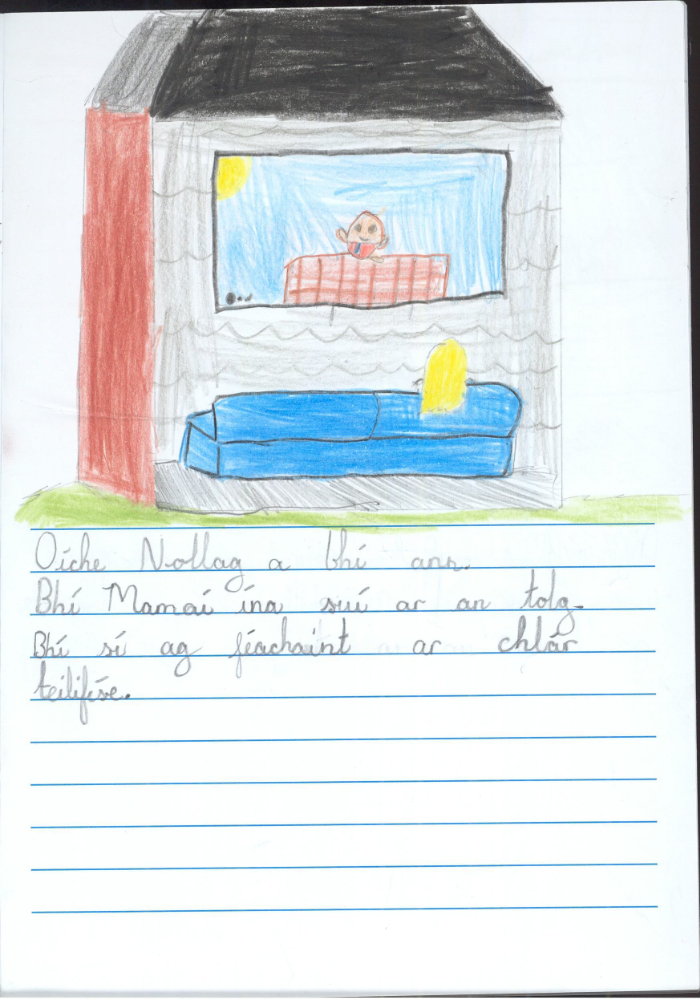 Oíche Nollag a bhí ann.
Bhí Mamaí ína suí ar an tolg.
Bhí sí ag féachaint ar chlár
teilifíse.